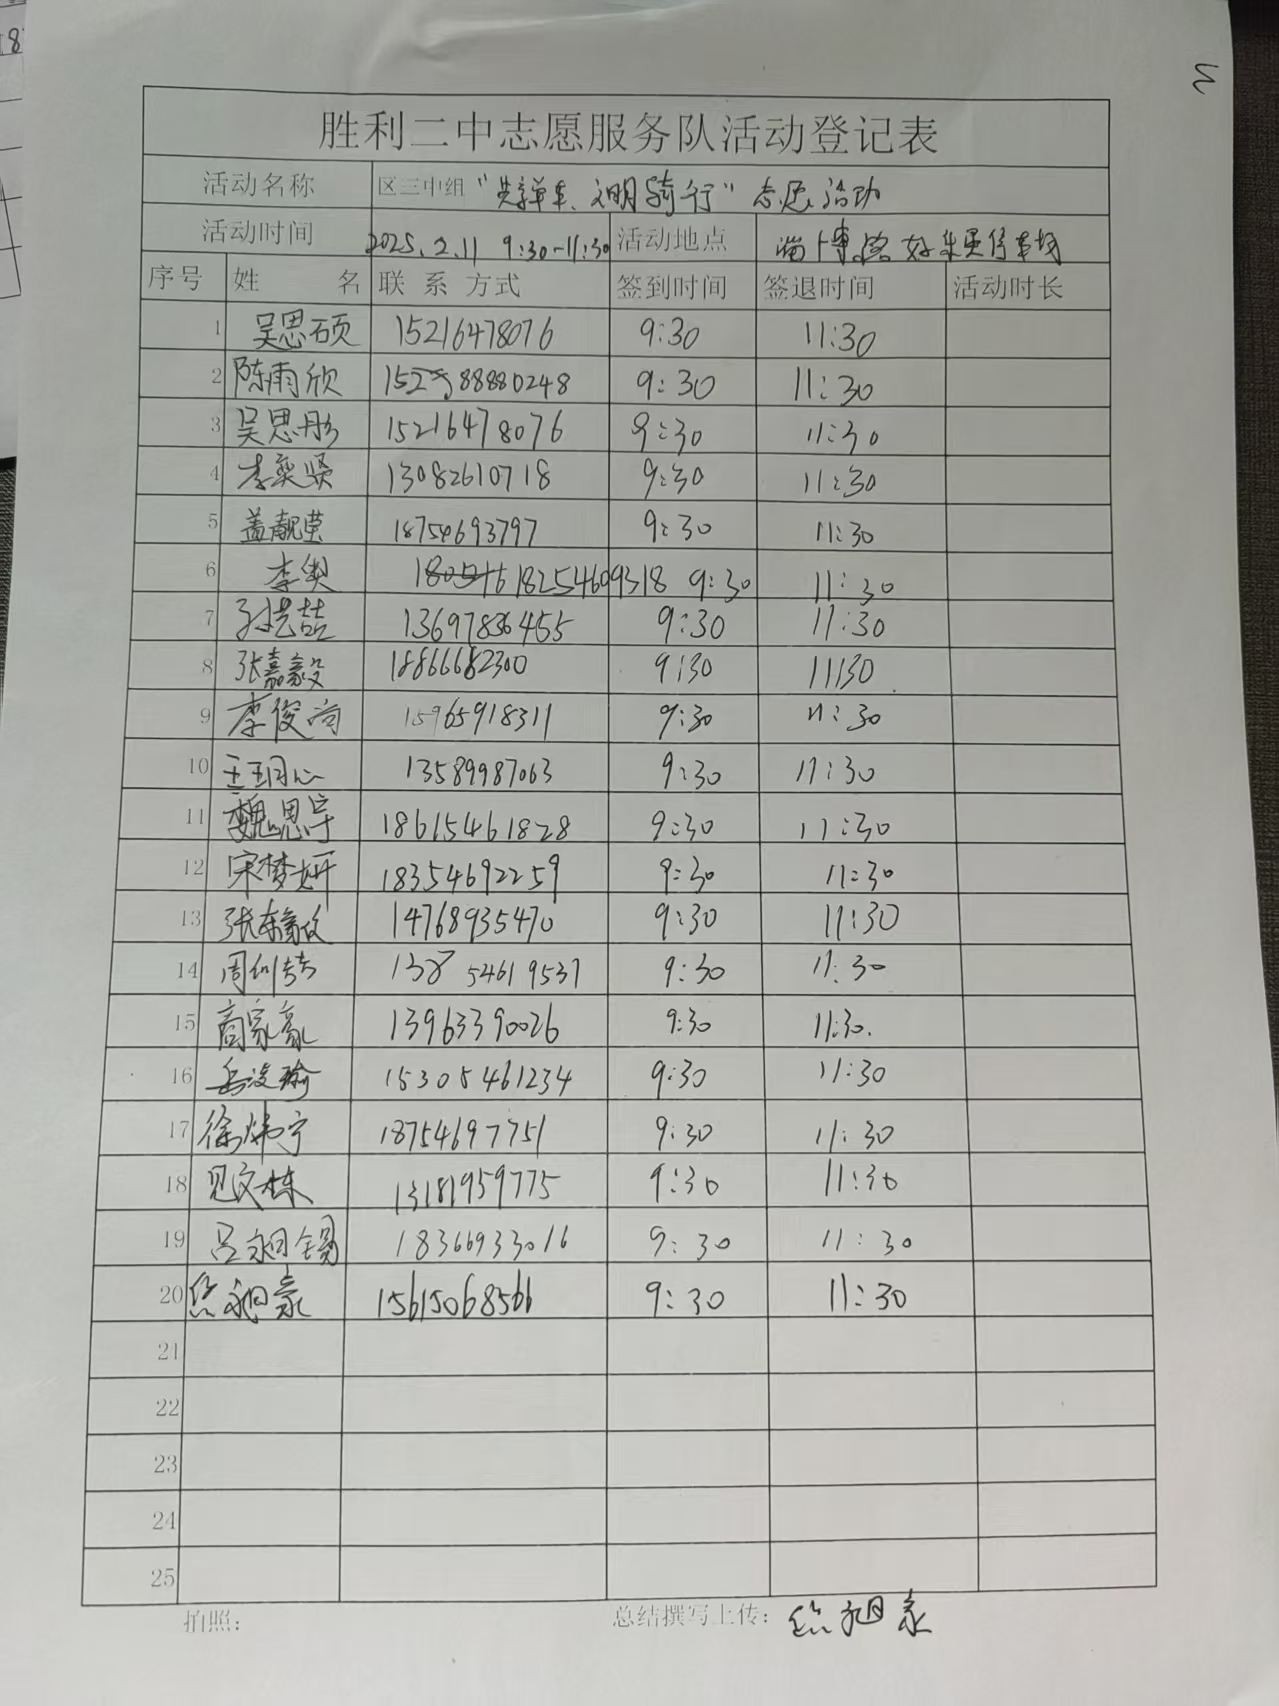 胜利二中志愿服务队活动登记表
活动名称 区三中组“共享单车、文明骑行”志愿活动
活动时间 2025.2.11 9:30-11:30 活动地点 淄博路好乐买停车场
序号 姓名 联系方式 签到时间 签退时间 活动时长
1 吴思硕 15216478076 9:30 11:30
2 陈雨欣 9:30 11:30
3 吴思彤 15216478076 9:30 11:30
4 李奕贤 13082610718 9:30 11:30
5 盖靓莹 18754693797 9:30 11:30
6 李 18254609318 9:30 11:30
7 孙 喆 13697836455 9:30 11:30
8 张嘉毅 18866682300 9:30 11:30
9 李俊尚 15965918311 9:30 11:30
10 王 13589987063 9:30 11:30
11 魏思宇 18615461828 9:30 11:30
12 宋梦妍 18354692259 9:30 11:30
13 张 14768935470 9:30 11:30
14 周 13854619537 9:30 11:30
15 商家豪 13963390026 9:30 11:30.
16 岳浚瑜 15305461234 9:30 11:30
17 徐炜宁 18754697751 9:30 11:30
18 见文栋 13181959775 9:30 11:30
19 吕昶锡 18366933016 9:30 11:30
20 昶豪 15615068566 9:30 11:30
21
22
23
24
25
拍照： 总结撰写上传： 昶豪